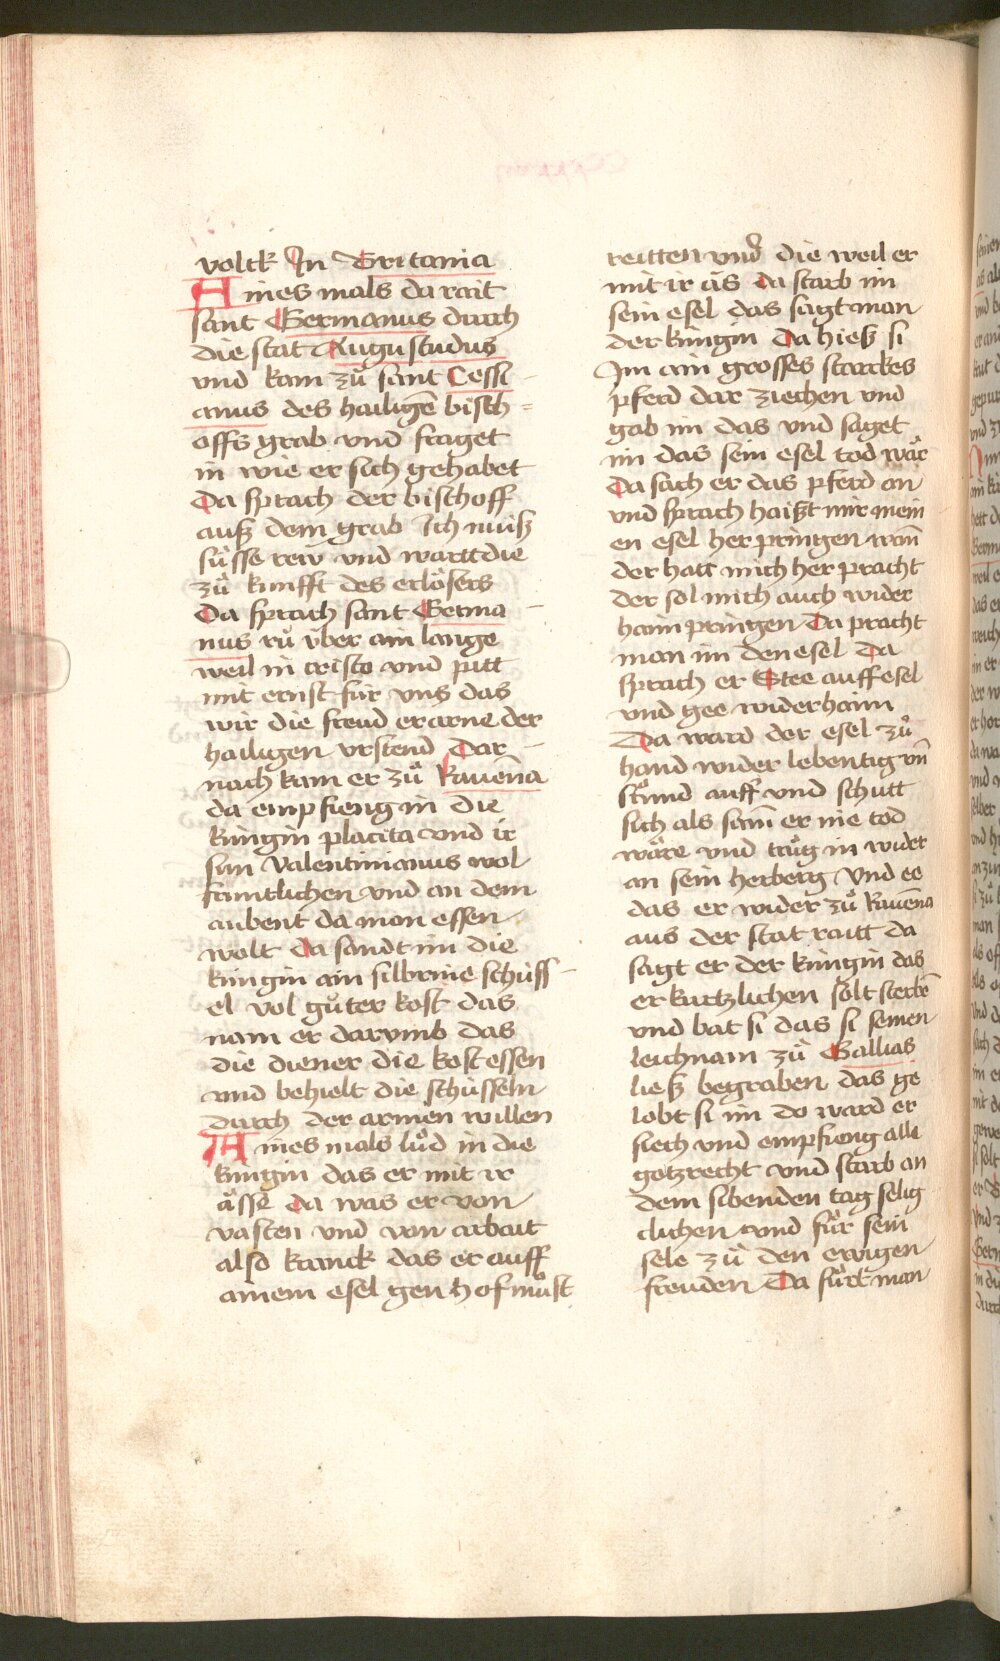 volck In Britania
Aines mals da rait
sant Germanus durch
die stat Augustudus
vnd kam zů sant Cessi
anus des hailigē bisch
offs grab vnd fraget
in wie er sich gehabet
Da sprach der bischoff
auß dem grab Ich muß
süsse rew vnd wartt die
zů kunfft des erlösers
Da sprach sant Germa
nus rů über ain lange
weil in cristo vnd pitt
mit ernst für vns das
wir die freud erarne der
hailigen vrstend Dar
nach kam er zů Rauēna
da empfieng in die
küngin placita vnd ir
sun Valentinianus wol
samtlichen vnd an dem
aubent da mon essen
wolt Da sandt im die
küngin ain silbrine schüss
el vol gůter kost das
nam er darvmb das
die diener die kost essen
vnd behielt die schüsseln
durch der armen willen
Aines mals lůd in die
küngin das er mit ir
ässe Da was er von
vasten vnd von arbait
also kranck das er auff
ainem esel gen hof můst
reitten vnd die weil er
mit ir äs Da starb im
sein esel das sagt man
der küngin Da hieß si
Im ain grosses starckes
pferd dar ziechen vnd
gab im das vnd saget
im das sein esel tod wär
Da sach er das pferd an
vnd sprach haißt mir mein
en esel her pringen wañ
der hatt mich her pracht
der sol mich auch wider
haim pringen Da pracht
man im den esel Da
sprach er Stee auff esel
vnd gee wider haim
Da ward der esel zů
hand wider lebentig vñ
stůnd auff vnd schutt
sich als sam er nie tod
wäre vnd trůg in wider
an sein herberg Vnd ee
das er wider zů Rauēna
aus der stat raitt da
sagt er der küngin das
er kurtzlichen solt sterbē
vnd bat si das si seinen
leichnam zů Gallias
ließ begraben das ge
lobt si im do ward er
siech vnd empfieng alle
gotzrecht vnd starb an
dem sibenden tag selig
clichen vnd für sein
sele zů den ewigen
freuden Da fůrt man